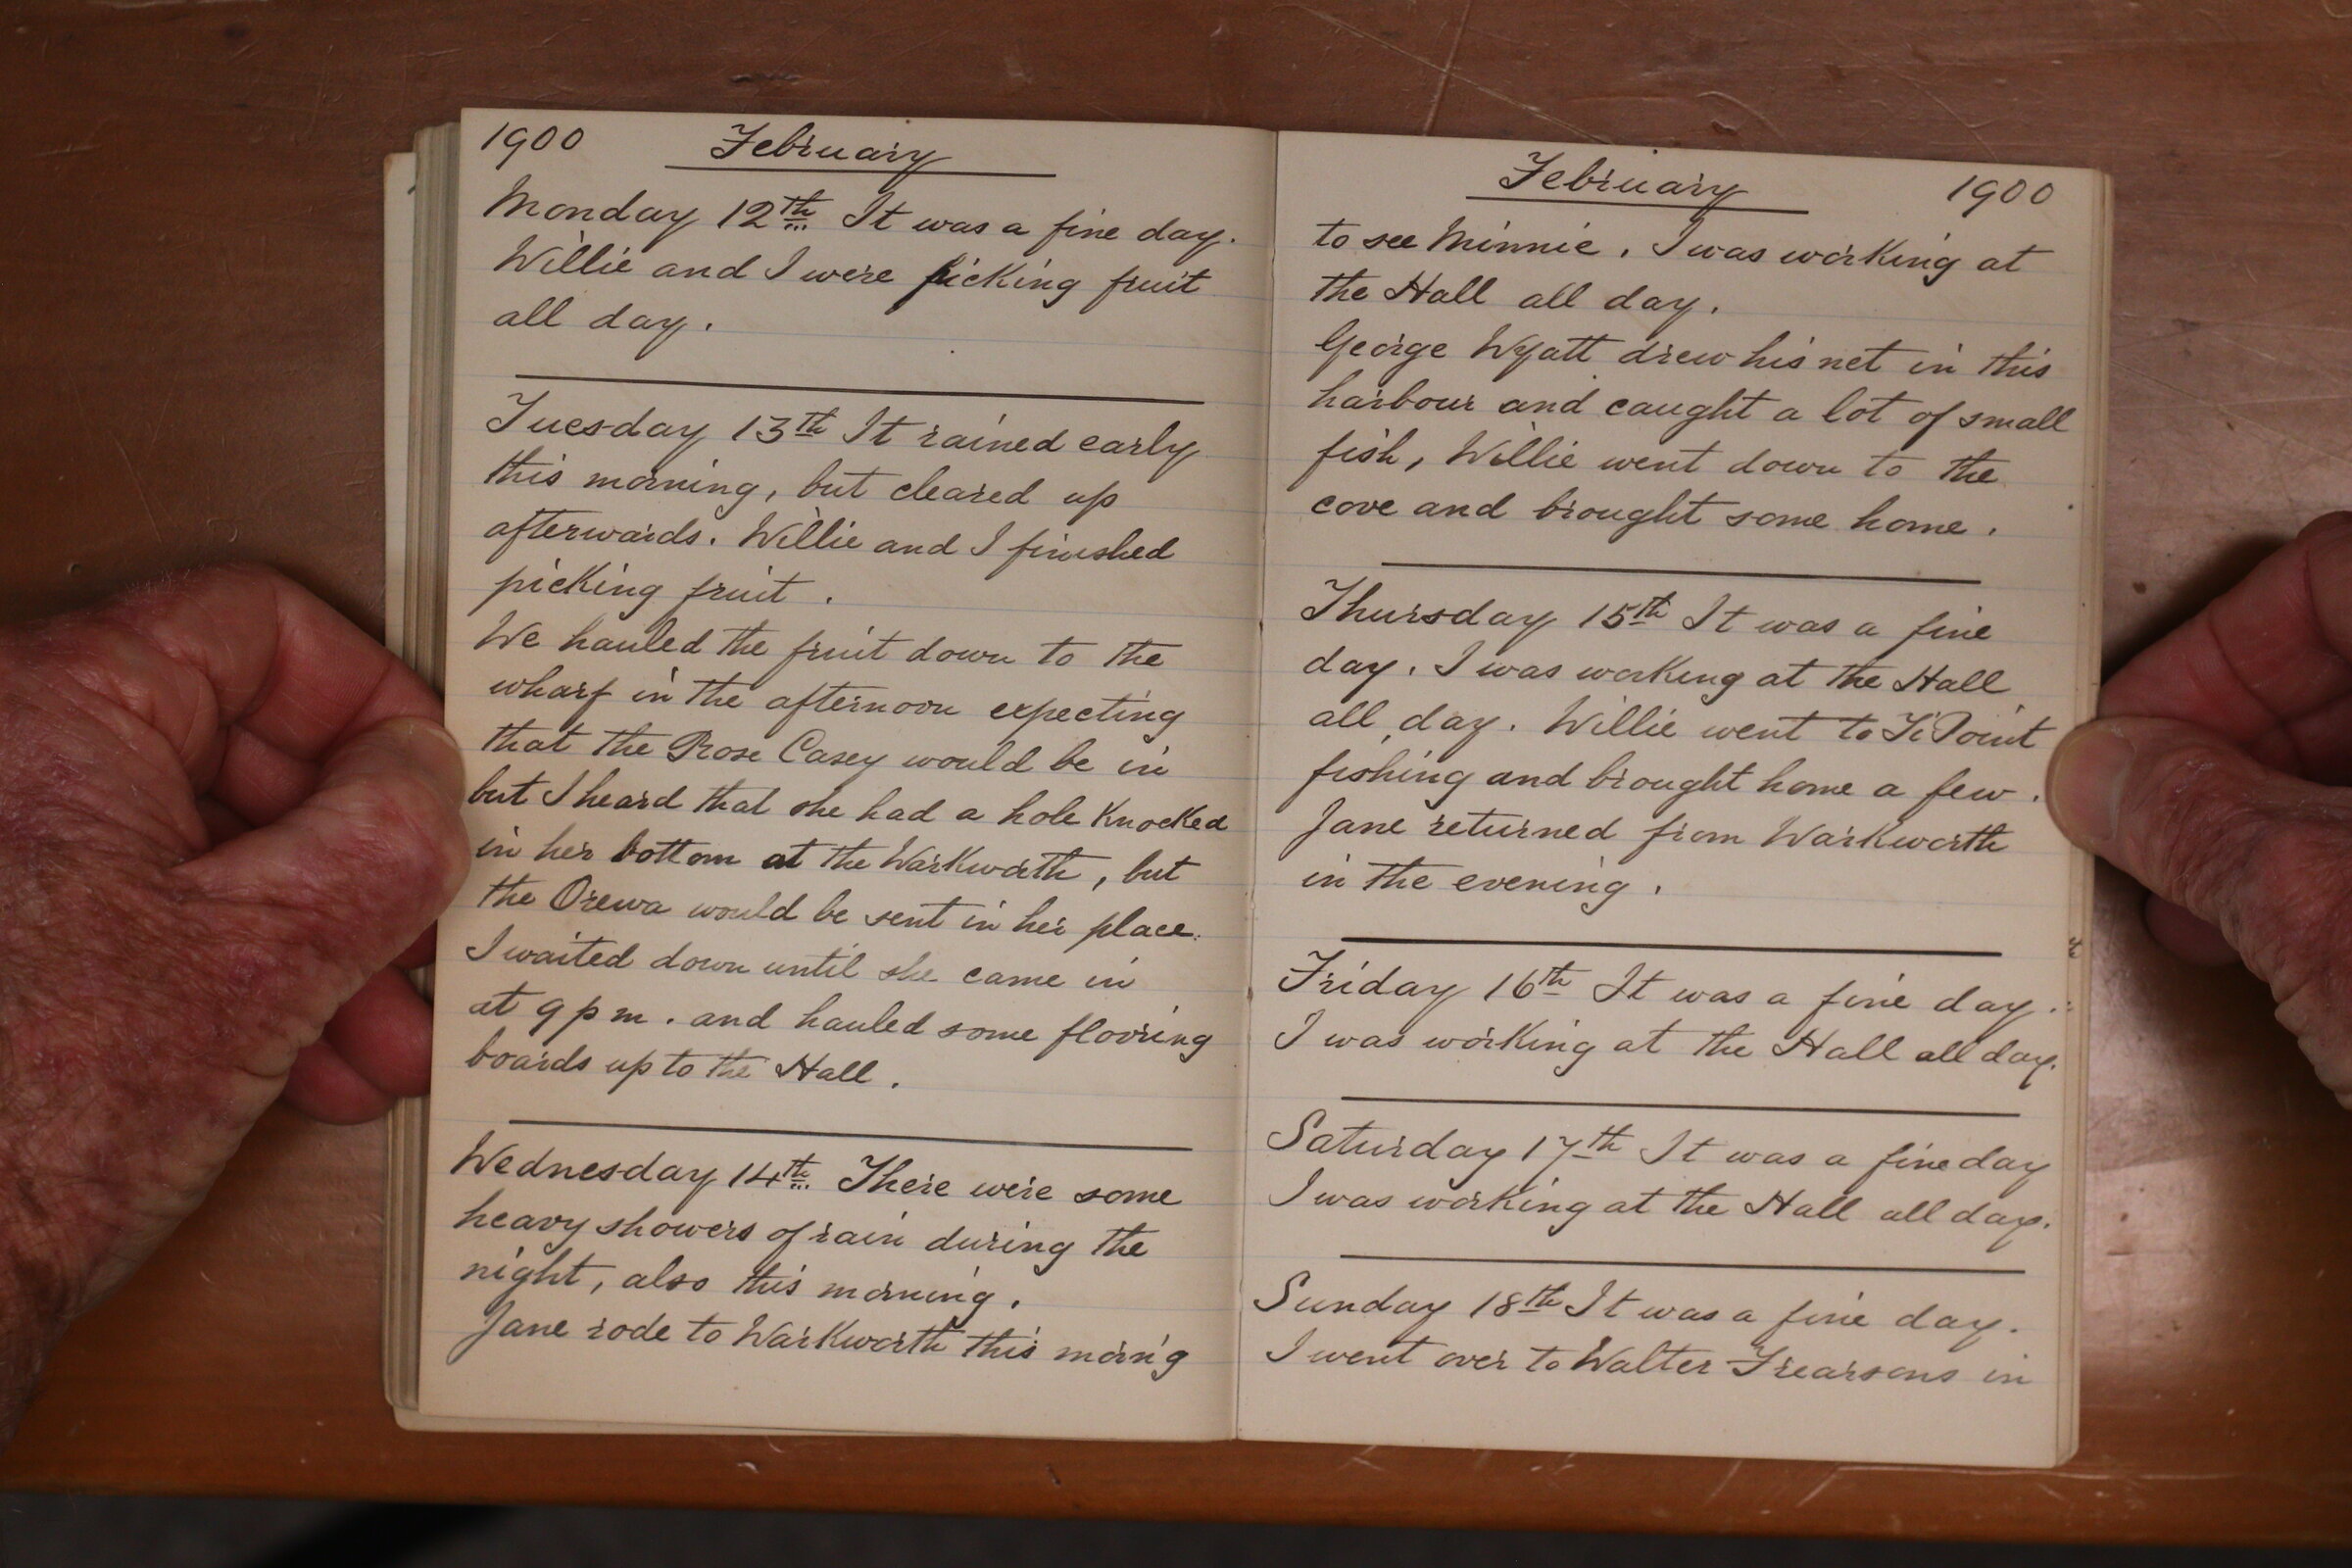 1900 February
Monday 12th It was a fine day.
Willie and I were picking fruit
all day.
Tuesday 13th It rained early
this morning, but cleared up
afterwards. Willie and I finished
picking fruit.
We hauled the fruit down to the
wharf in the afternoon expecting
that the Rose Casey would be in
but I heard that she had a hole knocked
in her bottom at the Warkworth, but
the Orewa would be sent in her place.
I waited down until she came in
at 9 pm. and hauled some flooring
boards up to the Hall.
Wednesday 14th There were some
heavy showers of rain during the
night, also this morning.
Jane rode to Warkworth this morn'g
February 1900
to see Minnie. I was working at
the Hall all day.
George Wyatt drew his net in this
harbour and caught a lot of small
fish, Willie went down to the
cove and brought some home.
Thursday 15th It was a fine
day. I was working at the Hall
all day. Willie went to Ti Point
fishing and brought home a few.
Jane returned from Warkworth
in the evening.
Friday 16th It was a fine day.
I was working at the Hall all day.
Saturday 17th It was a fine day
I was working at the Hall all day.
Sunday 18th It was a fine day.
I went over to Walter Frearsons in